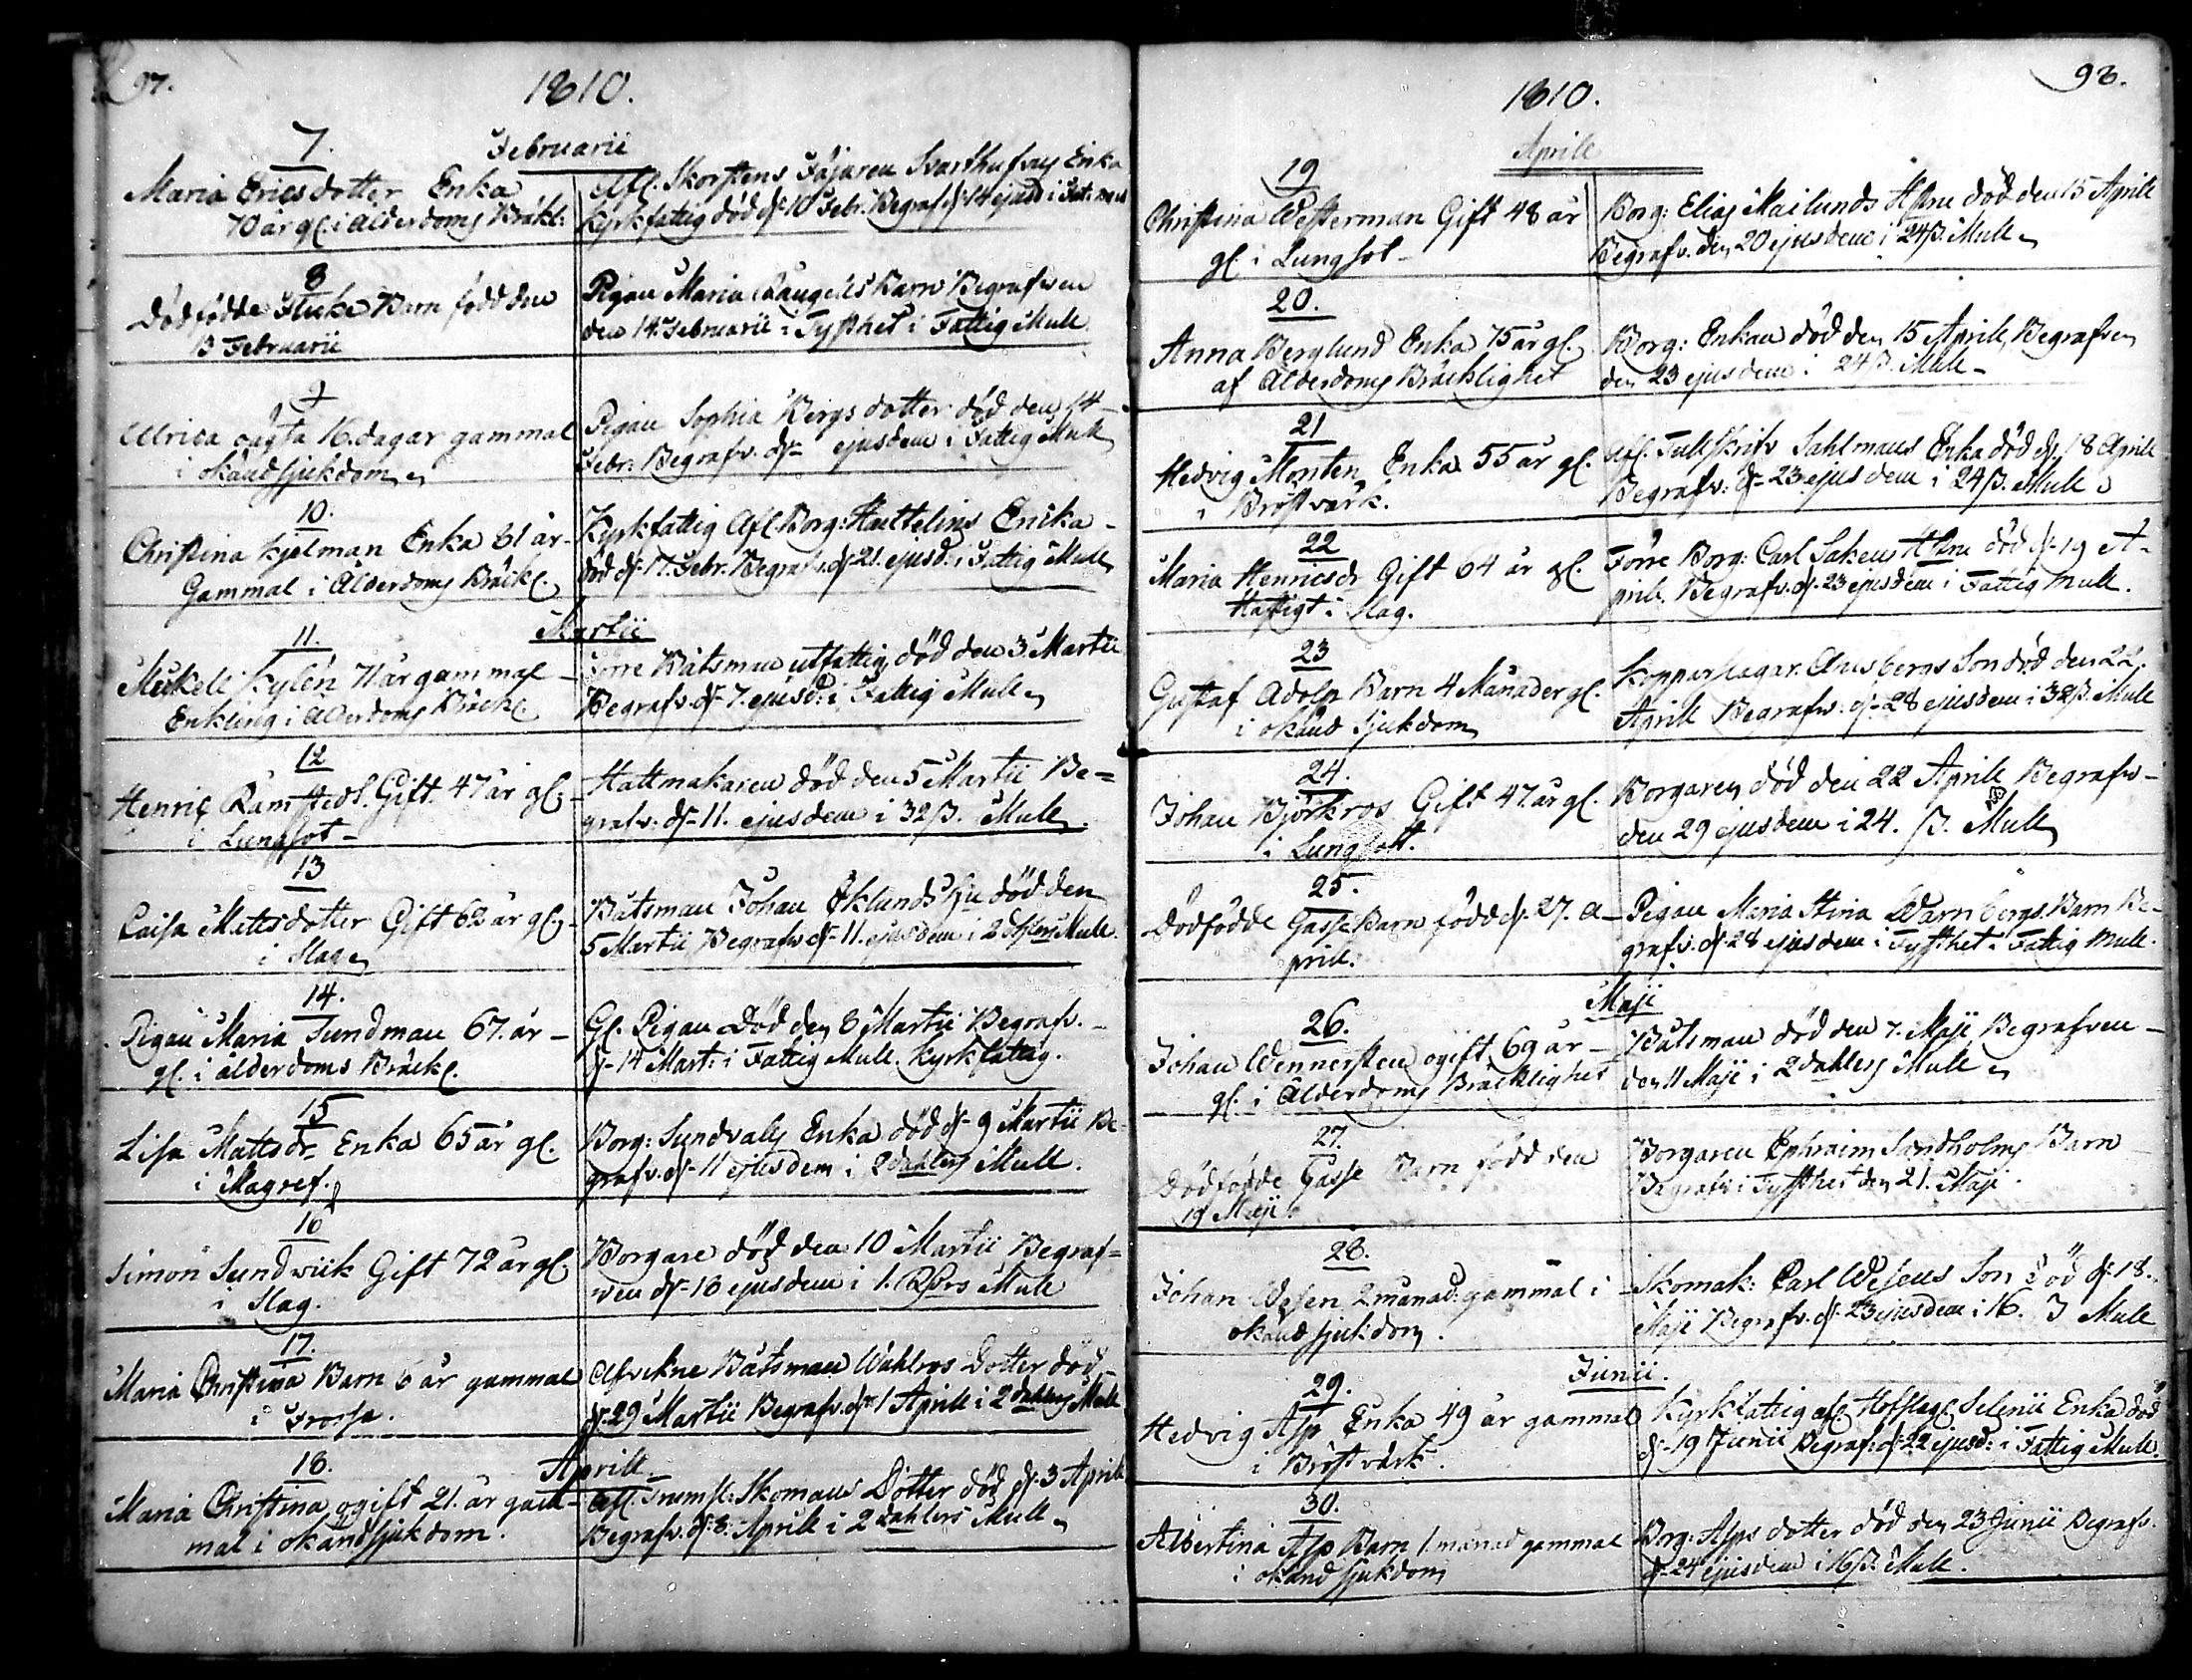 97.
1810.
Februarii
7.
Maria Ericsdotter Enka
70 år gl. i ålderdoms Bräkl:
Afl. Skorstens Fejaren Enka
Kyrkfattig död d: 10 Febr. Begraf d: 14 ejusd i
8
Dödfödde Flicke Barn född den
13 Februarii
Pigan Maria Barn Begrafwen
den 14 Februarii i Tysthet i Fattig Mull
9
Ulrica oägta 16. dagar gammal
i okänd sjukdom
Pigan Sophia Bergsdotter död den 14
Febr: Begrafv. d- ejusdem i Fattig Mull
10.
Christina Kjelman Enka 81 år
Gammal i Ålderdoms Bräckl.
Kyrkfattig Afl. Borg: Enka
död d: 17. Febr. Begrafv. d: 21. ejusd: i Fattig Mull
Martii
11.
Mickell Kylén 71 år gammal
Enkling i Ålderdoms Bräckl
Förre Båtsman utfattig död den 3 Martii
Begrafv. d- 7. ejusd: i Fattig Mull
12
Henric Ramstedt. Gift. 47 år gl.
i Lungsot
Hattmakaren död den 5 Martii Be=
grafv: d- 11. ejusdem i 32 ß. Mull.
13
Caisa Mattsdotter Gift 62 år gl.
i Slag
Båtsman Johan Eklunds Hu död den
5 Martii Begrafv d- 11. ejusdem i 2 dahlers Mull.
14.
Pigan Maria Sundman 67. år
gl. i ålderdoms Bräckl.
Gl. Pigan Död den 8 Martii Begrafv.
d- 14 Mart: i Fattig Mull. Kyrkfattig.
15
Lisa Mattsdr Enka 65 år gl.
i Magref.
Borg: Sundvalls Enka död d- 9 Martii Be-
grafv. d- 11 ejusdem i 2 dahlers Mull.
16
Simon Sundwik Gift 72 år gl.
i Slag.
Borgare död den 10 Martii Begraf=
wen d- 16 ejusdem i 1. Rdrs Mull
17.
Maria Christina Barn 6 år gammal
i Frossa.
Afvekne Båtsman Wahlros Dotter död
d. 29 Martii Begrafv. d- 1 Aprill i 2 dahlers Mull
Aprill
18.
Maria Christina ogift 21. år gam-
mal i okänd sjukdom.
Afl. Skomans Dotter död d- 3 Aprill
Begrafv. d. 8. Aprill i 2 dahlers Mull
98.
1810.
Aprill
19
Christina Westerman Gift 48 år
gl. i Lungsot
Borg: Elias Mailunds Hstru död den 15 Aprill
Begrafv. den 20 ejusdem i 24 ß. Mull
20.
Anna Berglund Enka 75 år gl.
af Ålderdoms Bräcklighet
Borg: Enkan död den 15 Aprill, Begrafven
den 23 ejusdem i 24 ß. Mull
21
Hedvig Monten Enka 55 år gl.
i Bröstvärk.
Afl. Tullskrifv Sahlmans Enka död d. 18 Aprill
Begrafv: d- 23 ejusdem i 24 ß. Mull
22
Maria Henricsdr Gift 64 år gl
Häftigt i Slag.
Förre Borg: Carl Sakens Hstru död d- 19 A-
prill. Begrafv. d. 23 ejusdem i Fattig Mull.
23
Gustaf Adolp Barn 4 Månader gl.
i okänd Sjukdom
Kopparslagar. Son död den 22.
Aprill Begrafv. d- 28 ejusdem i 32 ß. Mull
24.
Johan Björkros Gift 47. år gl.
i Lungsott.
Borgaren död den 22 Aprill Begrafv-
den 29 ejusdem i 24. ß. Mull
25.
Dödfödde Gasse Barn född d. 27. A-
prill.
Pigan Maria Stina Warnbergs. Barn Be-
grafv. d. 28 ejusdem i Tysthet i Fattig Mull.
Maji
26.
Johan Wennersten ogift 69 år
gl. i Ålderdoms Bräcklighet
Båtsman död den 7. Maji Begrafven
den 11 Maji i 2 dahlers Mull
27.
Dödfödde Gasse Barn född den
19 Maji
Borgaren Ephraim Sandholms Barn
Begrafv i Tysthet den 21. Maji.
28.
Johan Wesen 2 månad: gammal i
okänd sjukdom.
Skomak: Carl Wesens Son Död d. 18.
Maji Begrafv. d. 23 ejusdem i 16. ß Mull
Junii.
29.
Hedvig Asp Enka 49 år gammal
i Bröstvärk.
Kyrkfattig afl. Hofslag. Selenii Enka död
d- 19 Junii Begraf: d. 22 ejusd: i Fattig Mull.
30.
Albertina Asp Barn 1. månad gammal
i okänd sjukdom
Borg: Asps dotter död den 23 Junii Begrafv.
d- 24 ejusdem i 16 ß. Mull.